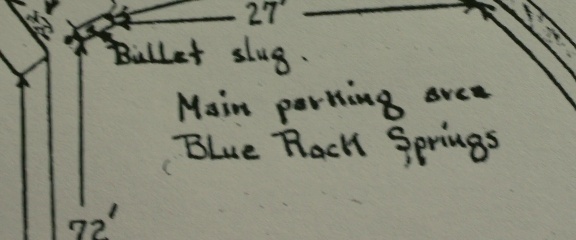 27'
Bullet slug.
Main parking area
Blue Rock Springs
72'